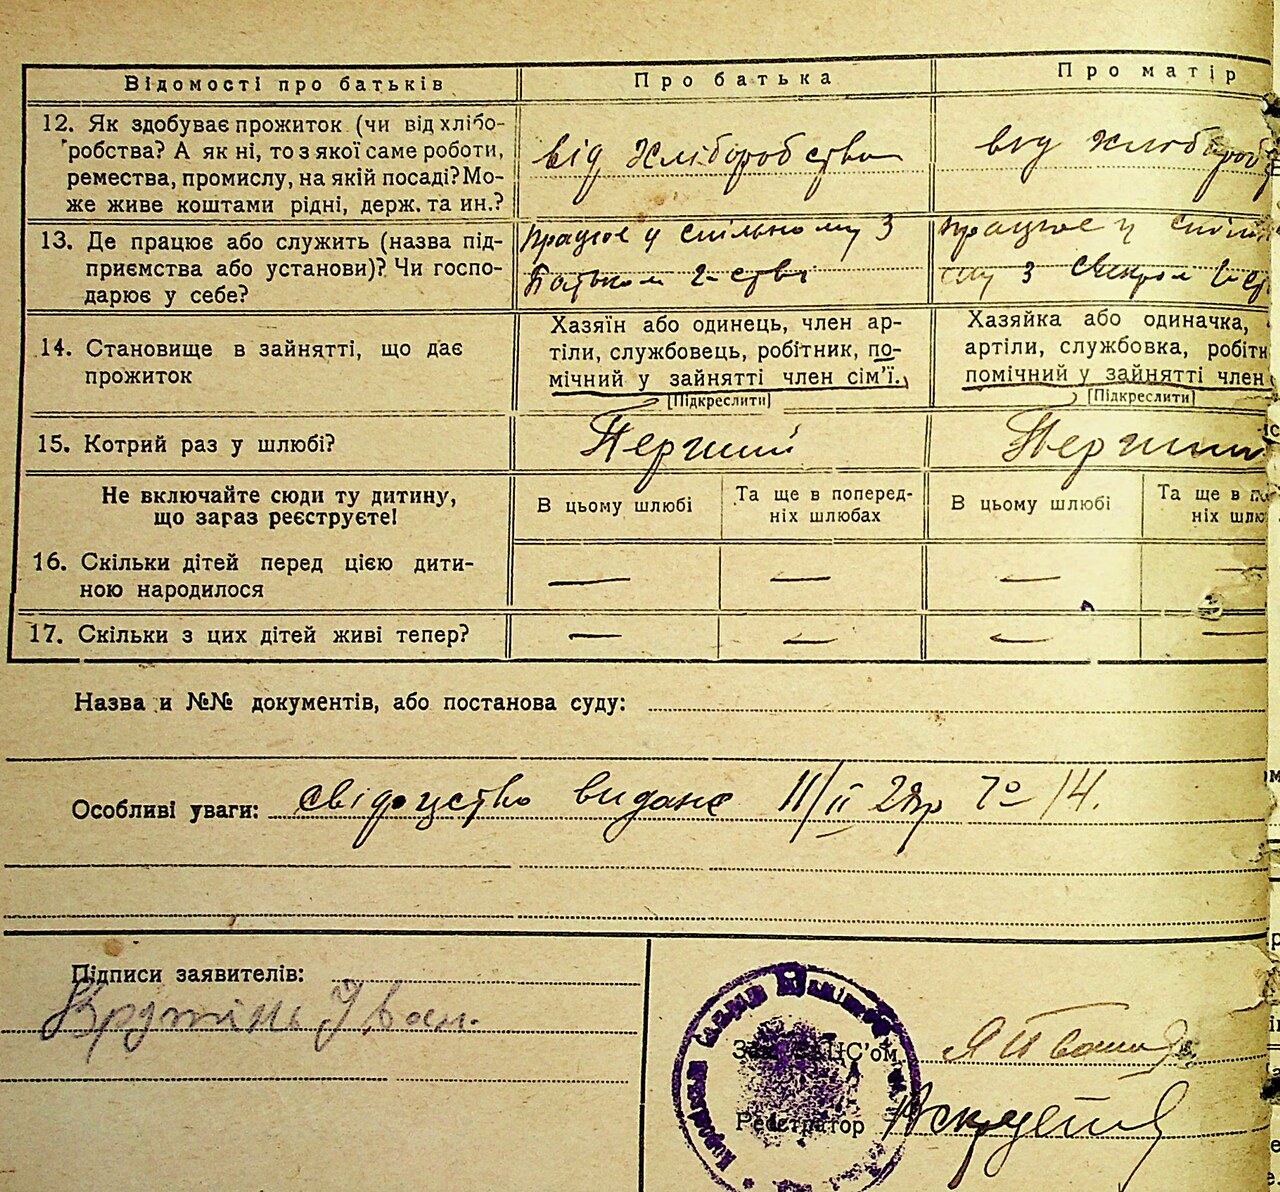 Відомості про батьків
Про батька
Про матір
12. Як здобуває прожиток (чи від хлібо-
робства? А як ні, то з якої саме роботи,
ремества, промислу, на якій посаді? Мо-
же живе коштами рідні, держ. та ин.?
від Хліборобства
від
13. Де працює або служить (назва під-
приємства або установи)? Чи госпо-
дарює у себе?
працює у спільному з
Батьком г-стві
працює у
му з Свекром
14. Становище в зайнятті, що дає
прожиток
Хазяїн або одинець, член ар-
тіли, службовець, робітник, по-
мічний у зайнятті член сім'ї.
[Підкреслити]
Хазяйка або одиначка,
артіли, службовка, робітн
помічний у зайнятті член
[Підкреслити]
15. Котрий раз у шлюбі?
Перший
Перший
Не включайте сюди ту дитину,
що зараз реєструєте!
В цьому шлюбі
Та ще в поперед-
ніх шлюбах
В цьому шлюбі
Та ще в
ніх
16. Скільки дітей перед цією дити-
ною народилося
— — — —
17. Скільки з цих дітей живі тепер?
— — — —
Назва и №№ документів, або постанова суду:
Особливі уваги: свідоцтво видане 11/II 29р
Підписи заявителів:
Іван.
Зав. ЗАЦС'ом
Реєстратор